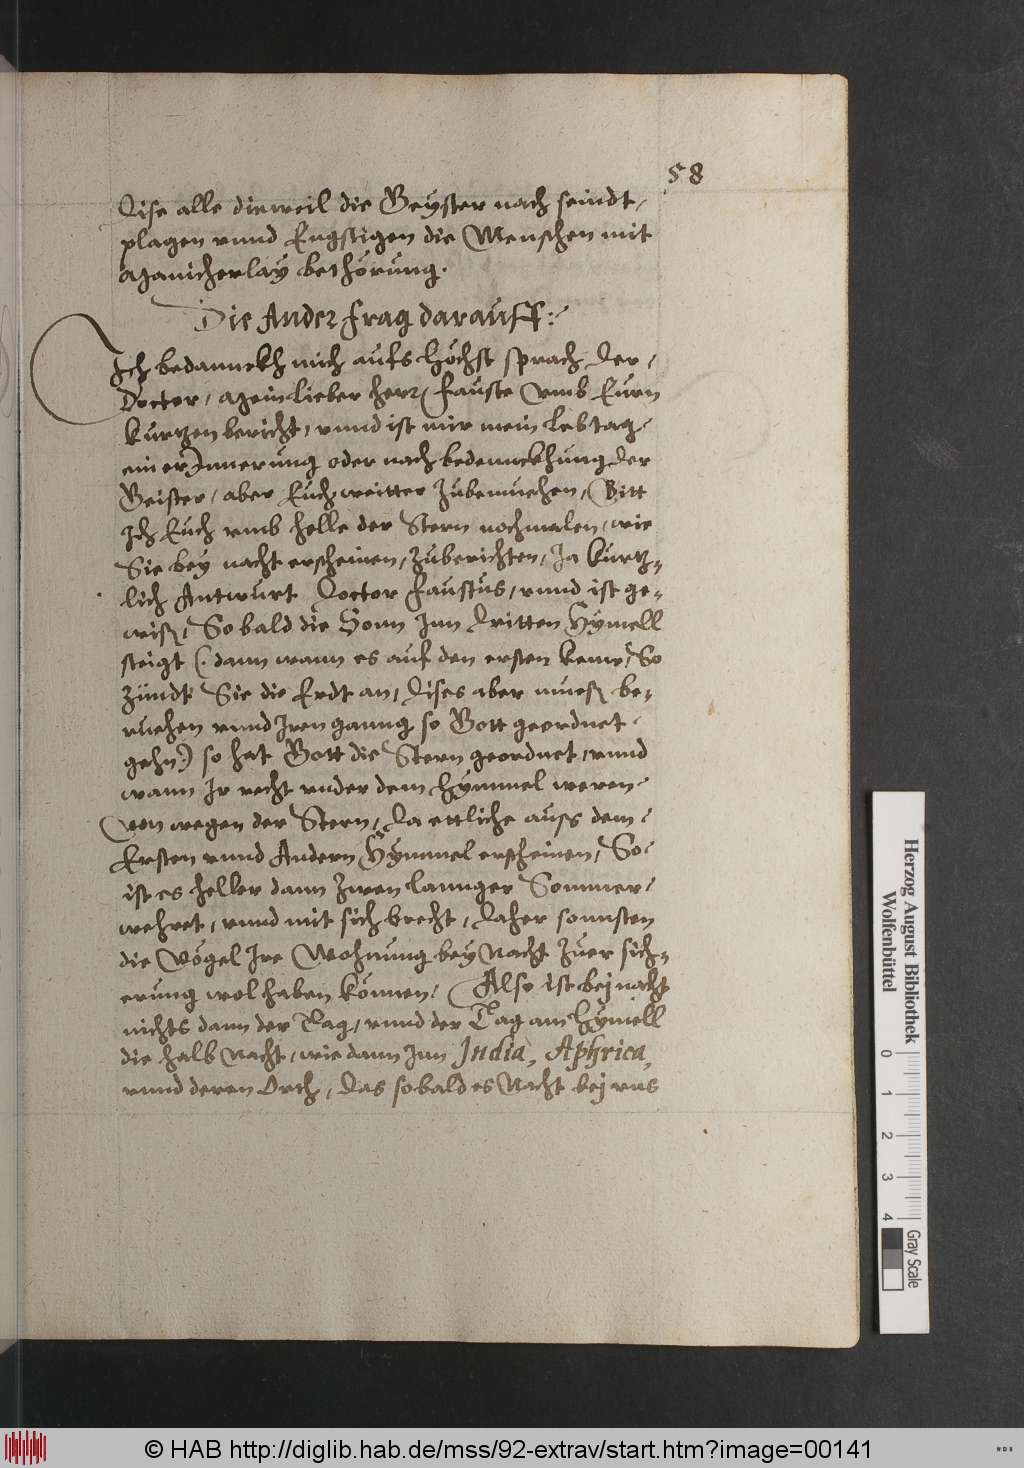 58
Dise alle dieweil die Geyster nach seindt,
plagen vnnd Engstigen die Menschen mit
Manicherlay bethörung.
Die Ander frag darauff:
Ich bedannckh mich aufs höchst sprach Der
Doctor, Mein lieber herr Fauste vmb Eurn
kurtzen bericht, vnnd ist mir mein lebtag
ein erInnerung oder nach bedennckhung Der
Geister, aber Euch weitter Zubemuehen, Bitt
Ich Euch vmb helle der Stern nochmalen, wie
Sie bey nacht erscheinen, Zuberichten, Ja kurtz-
lich Antwurt Doctor Faustus, vnnd ist ge-
wiß, So bald die Sonn Inn Dritten Hymell
steigt (: dann wann es auf den ersten keme, So
Zündt Sie die Erdt an, Dises aber mueß be-
ruehen vnnd Iren ganng so Gott geordnet
gehn:) so hat Gott die Stern geordnet, vnnd
wann Ir recht vnder dem Hymmel weren
Von wegen der Stern, Da ettliche auss dem
Ersten vnnd Andern Hymmel erscheinen, So
ist es heller dann Zwen lannger Sommer
wehret, vnnd mit sich brecht, Daher sonnsten
die Vögel Ire Wohnung bey Nacht Zuer sich-
erung wol haben können. Also ist bej nacht
nichts dann der Tag, vnnd der Tag am Hymell
die halb Nacht, wie dann Inn India, Aphrica,
vnnd deren Orth, Das so bald es Nacht bej vns
Herzog August Bibliothek
Wolfenbüttel
0 1 2 3 4
Gray Scale
© HAB http://diglib.hab.de/mss/92-extrav/start.htm?image=00141